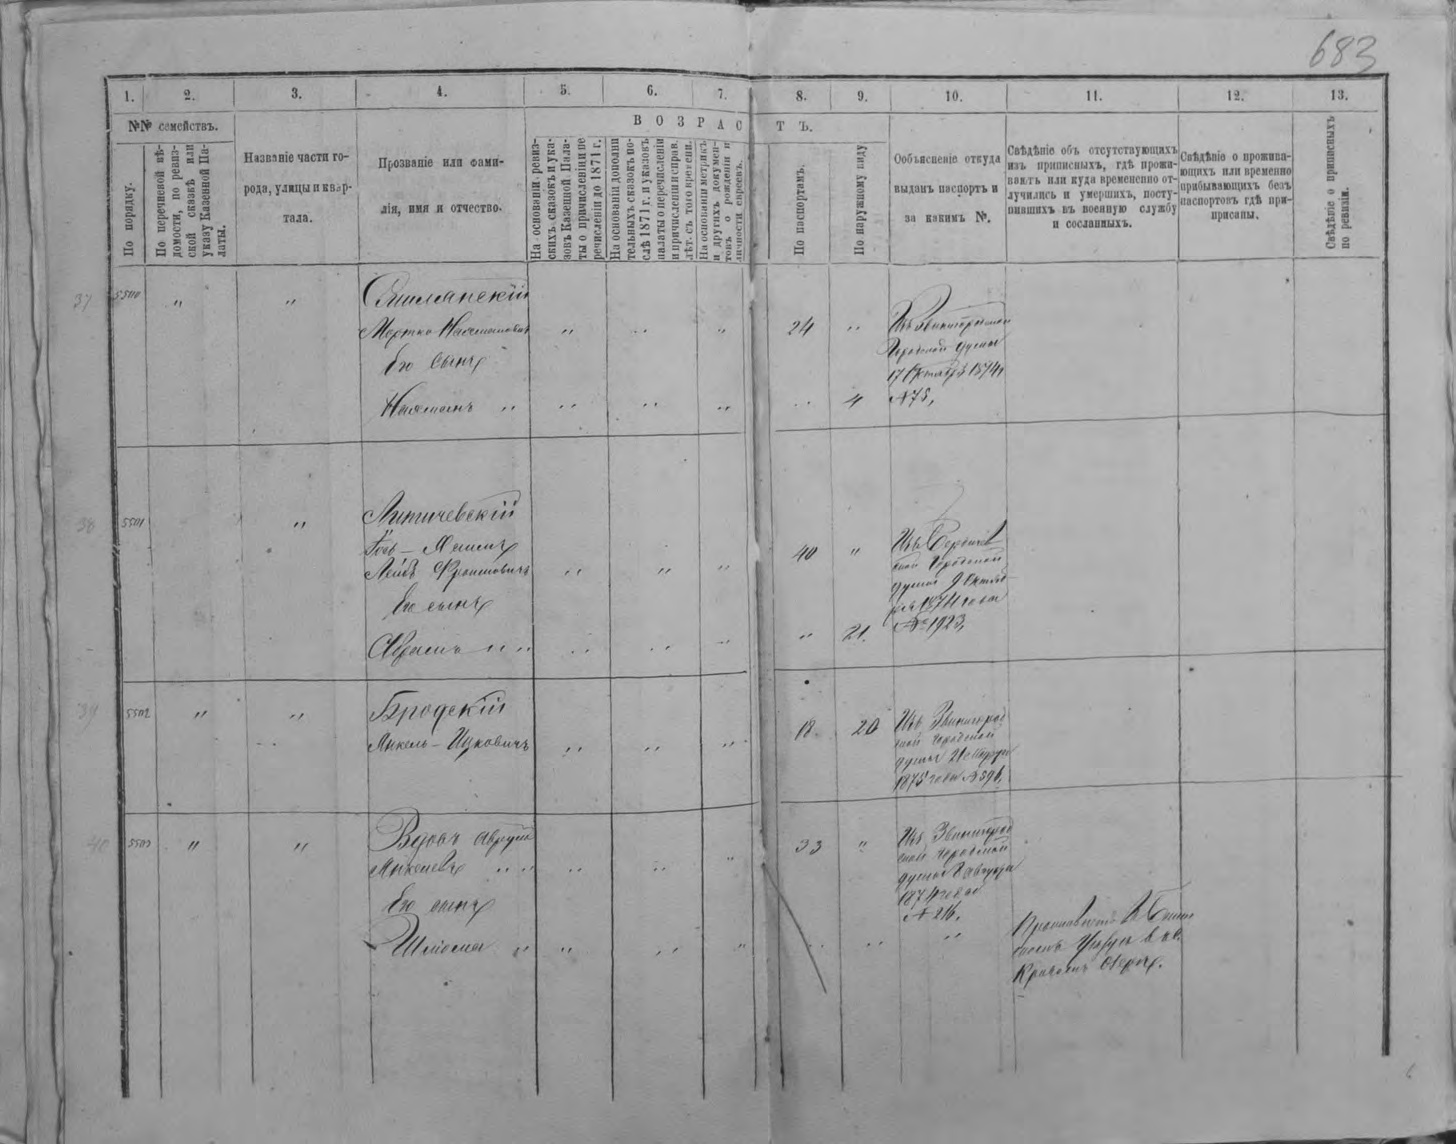 683
1. 2. 3. 4. 5. 6. 7. 8. 9. 10. 11. 12. 13.
№№ семействъ.
В О З Р А С Т Ъ.
По порядку.
По перечневой вѣ-
домости, по ревиз-
ской сказкѣ или
указу Казенной Па-
латы.
Названіе части го-
рода, улицы и квар-
тала.
Прозваніе или фами-
лія, имя и отчество.
На основаніи ревиз-
скихъ сказокъ и ука-
зовъ Казенной Пала-
ты о причисленіи пе
речисленіи до 1871 г.
На основаніи дополни
тельныхъ сказокъ по-
слѣ 1871 г. и указовъ
палаты о перечисленіи
и причисленіи исправ.
лѣт. съ того времени.
На основаніи метрикъ
и другихъ докумен-
товъ о рожденіи и
личности евреевъ.
По паспортамъ.
По наружному виду.
Объясненіе откуда
выданъ паспортъ и
за какимъ №.
Свѣдѣніе объ отсутствующихъ
изъ приписныхъ, гдѣ прожи-
ваютъ или куда временно от-
лучились и умершихъ, посту-
пившихъ въ военную службу
и сосланныхъ.
Свѣдѣніе о прожива-
ющихъ или временно
прибывающихъ безъ
паспортовъ гдѣ при-
писаны.
Свѣдѣніе о приписныхъ
по ревизіи.
37 5500 " "
Мортко
Его сынъ
Нахманъ " "
24 "
Городской думы
17 Октября 1874
№ 78,
4
38 5501 "
Литичевскій
Лейбъ Фроимовичъ
Его сынъ
Аврамъ " "
40 "
Изъ Бердичев
ской Городской
думы 9 Октяб
ря 1874 года
№ 1923,
" 21.
39 5502 " "
Бродскій
Янкель-Ицковичъ
18. 20
Изъ Звенигород
ской городской
думы
1875 года № 396.
40 5503 " "
Янкелевъ " "
Его сынъ
Шлёма "
33 "
Изъ Звенигород
ской городской
думы 8 августа
1874 года
№ 216.